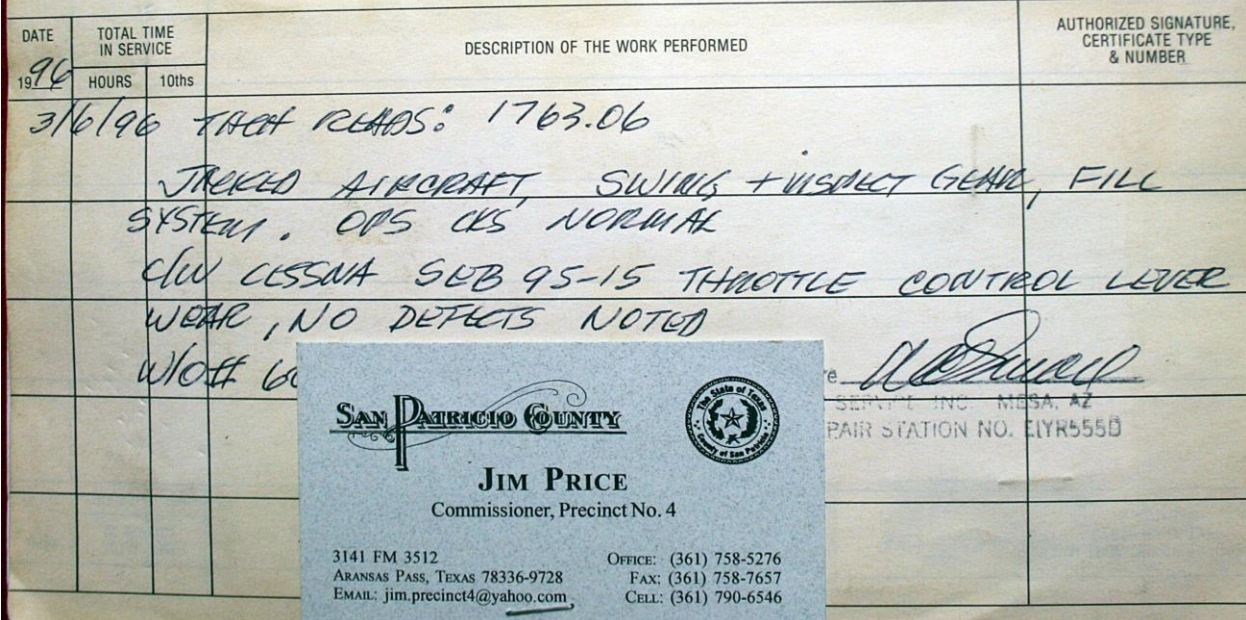 DATE
TOTAL TIME
IN SERVICE
DESCRIPTION OF THE WORK PERFORMED
AUTHORIZED SIGNATURE,
CERTIFICATE TYPE
& NUMBER
1996
HOURS
10ths
3/6/96 TACH READS: 1763.06
JACKED AIRCRAFT, SWING + INSPECT GEAR, FILL
SYSTEM. OPS CKS NORMAL
C/W CESSNA SEB 95-15 THROTTLE CONTROL LEVER
WEAR, NO DEFECTS NOTED
W/O# 60
SERVICE INC MESA, AZ
PAIR STATION NO. EIYR555D
SAN PATRICIO COUNTY
The State of Texas
County of San Patricio
JIM PRICE
Commissioner, Precinct No. 4
3141 FM 3512
ARANSAS PASS, TEXAS 78336-9728
EMAIL: jim.precinct4@yahoo.com
OFFICE: (361) 758-5276
FAX: (361) 758-7657
CELL: (361) 790-6546